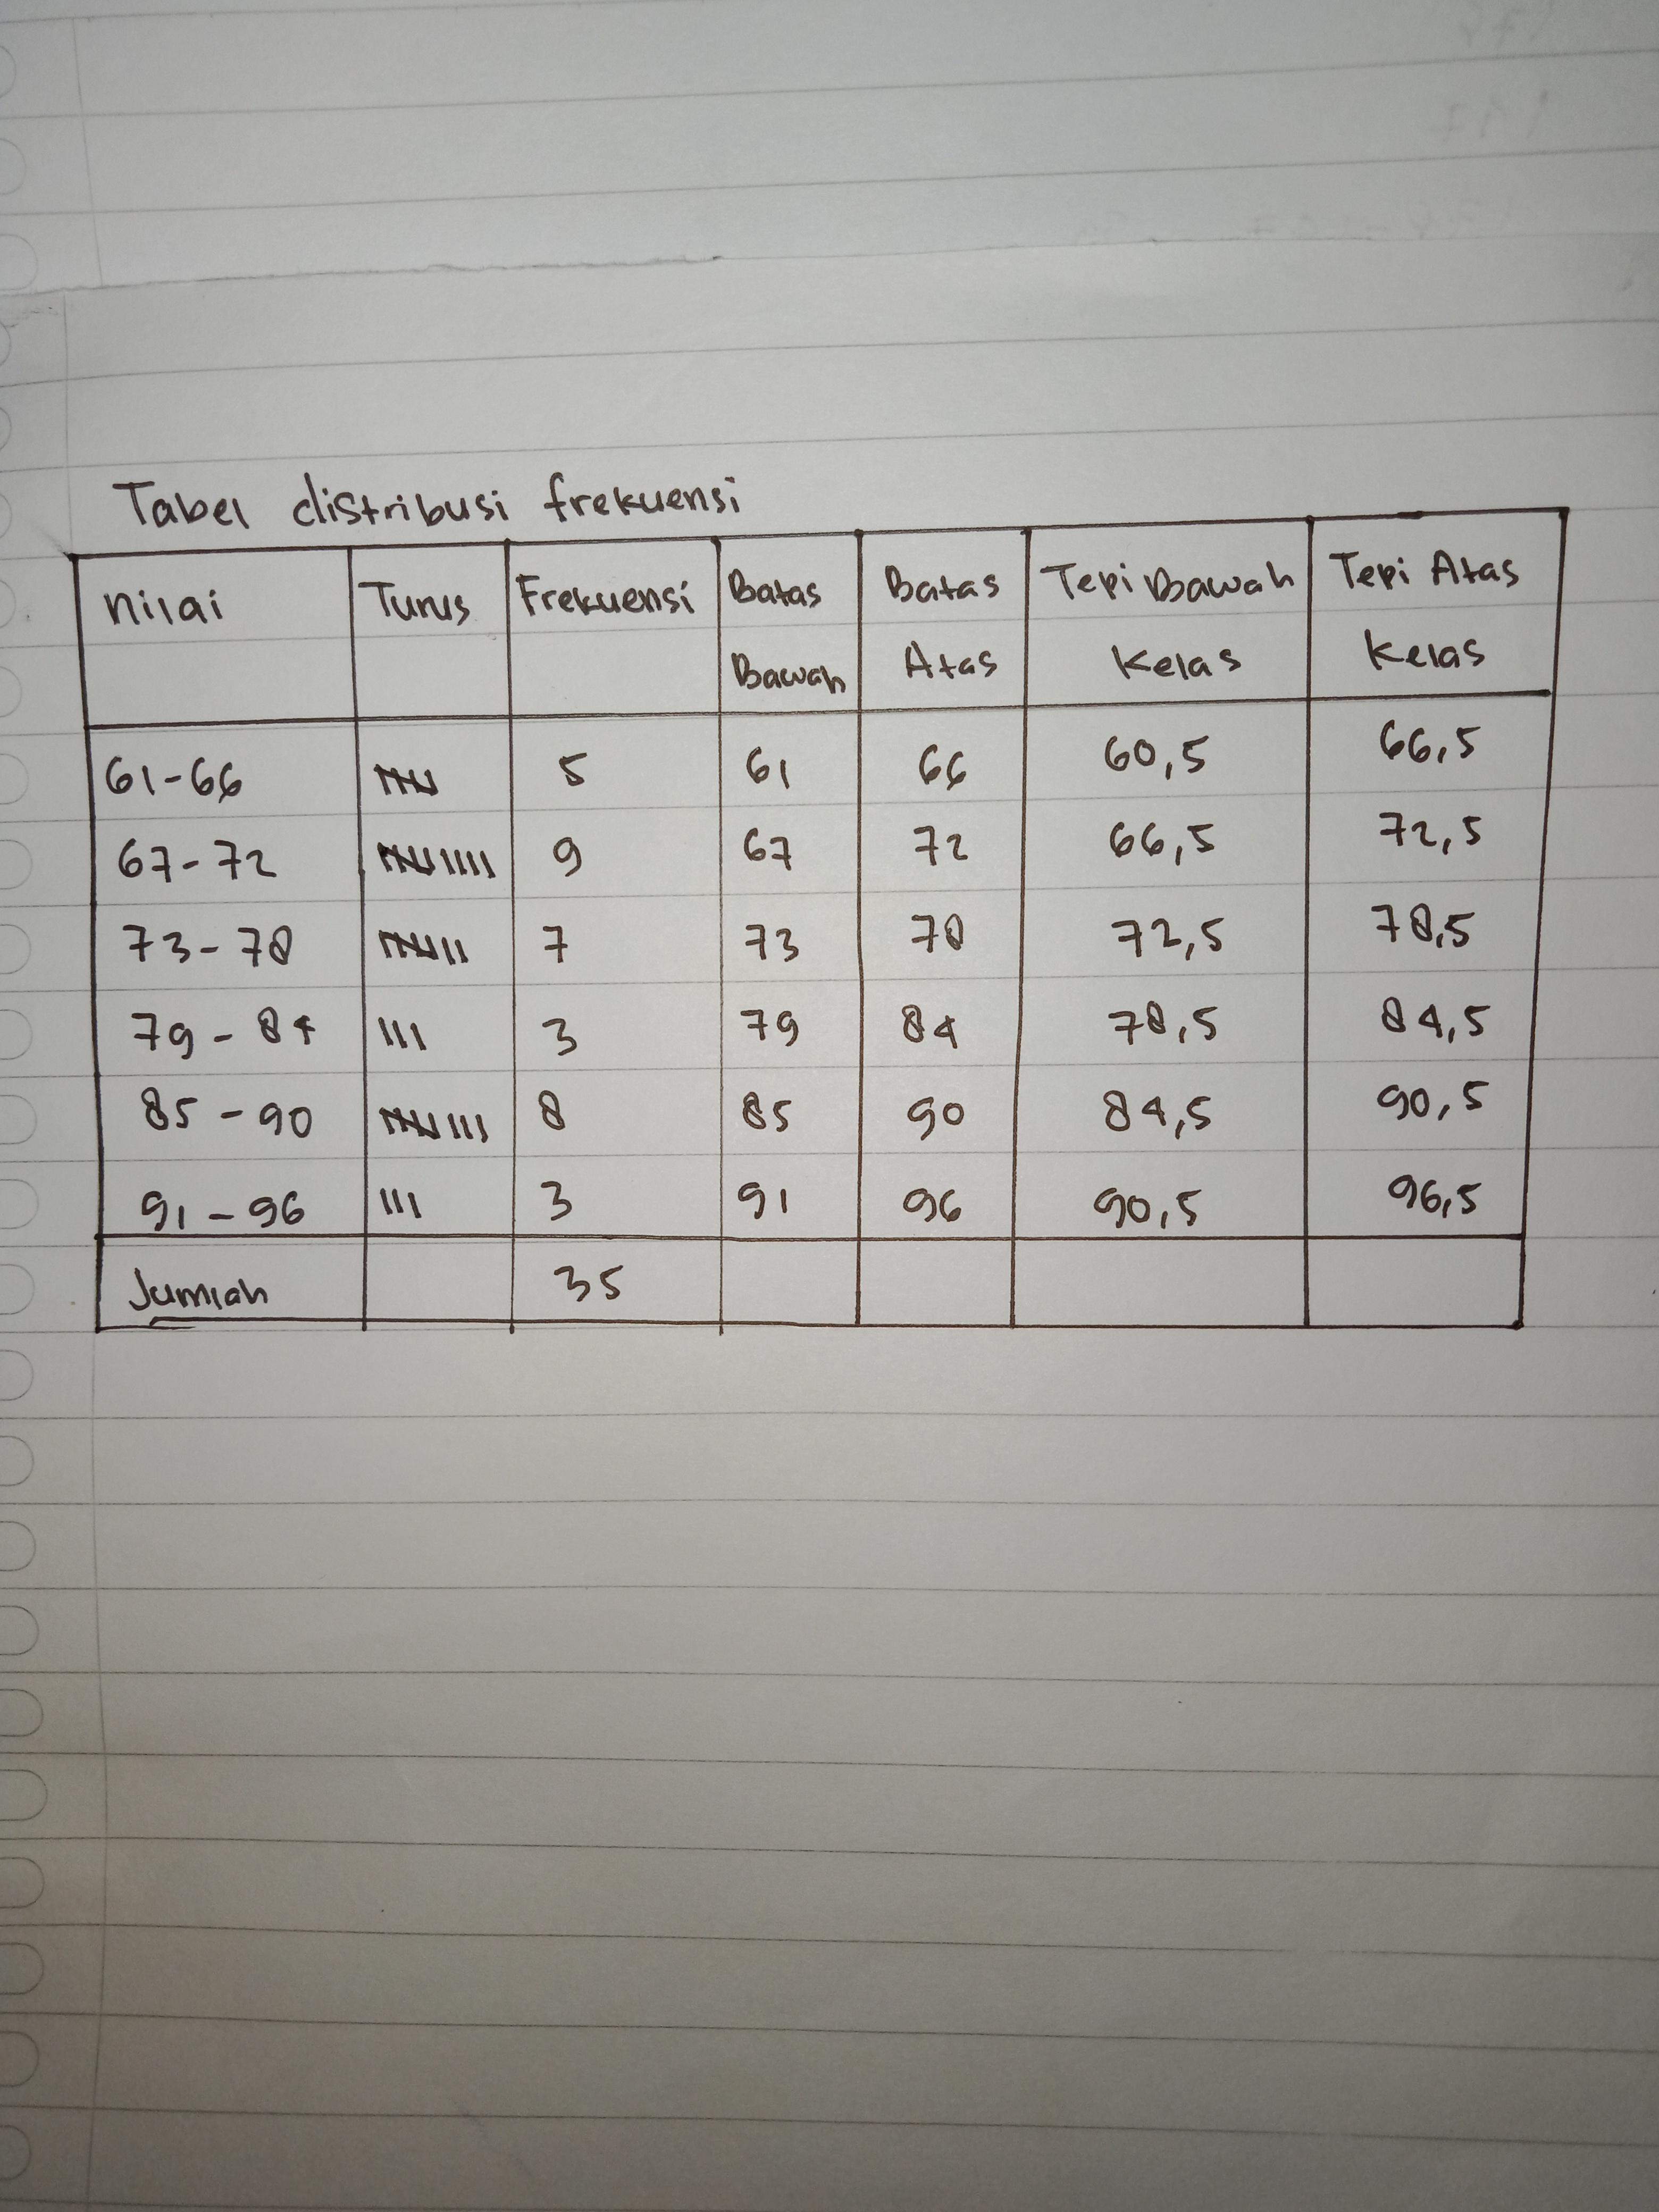 Tabel distribusi frekuensi
Nilai Turus Frekuensi Batas Bawah Batas Atas Tepi Bawah Kelas Tepi Atas Kelas
61-66 5 61 66 60,5 66,5
67-72 9 67 72 66,5 72,5
73-78 7 73 78 72,5 78,5
79-84 3 79 84 78,5 84,5
85-90 8 85 90 84,5 90,5
91-96 3 91 96 90,5 96,5
Jumlah 35